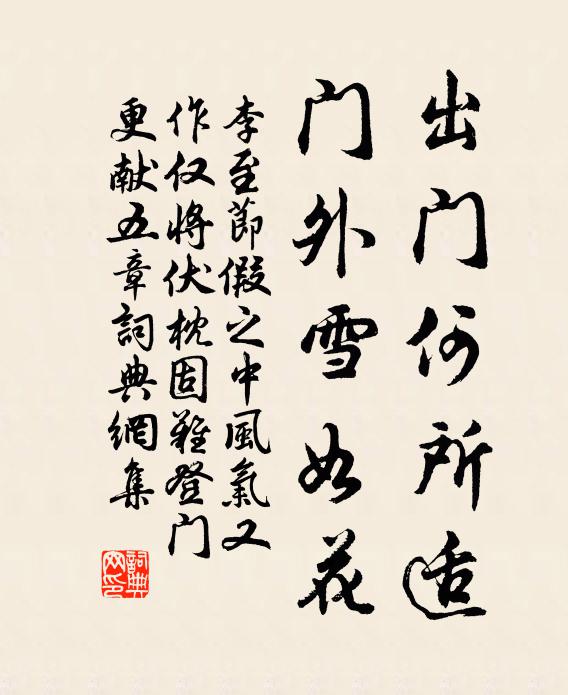 出门何所适
门外雪如花
李至節假之中風氣又
作仅將伏枕固難登门
更献五章詞典網集
詞典网印